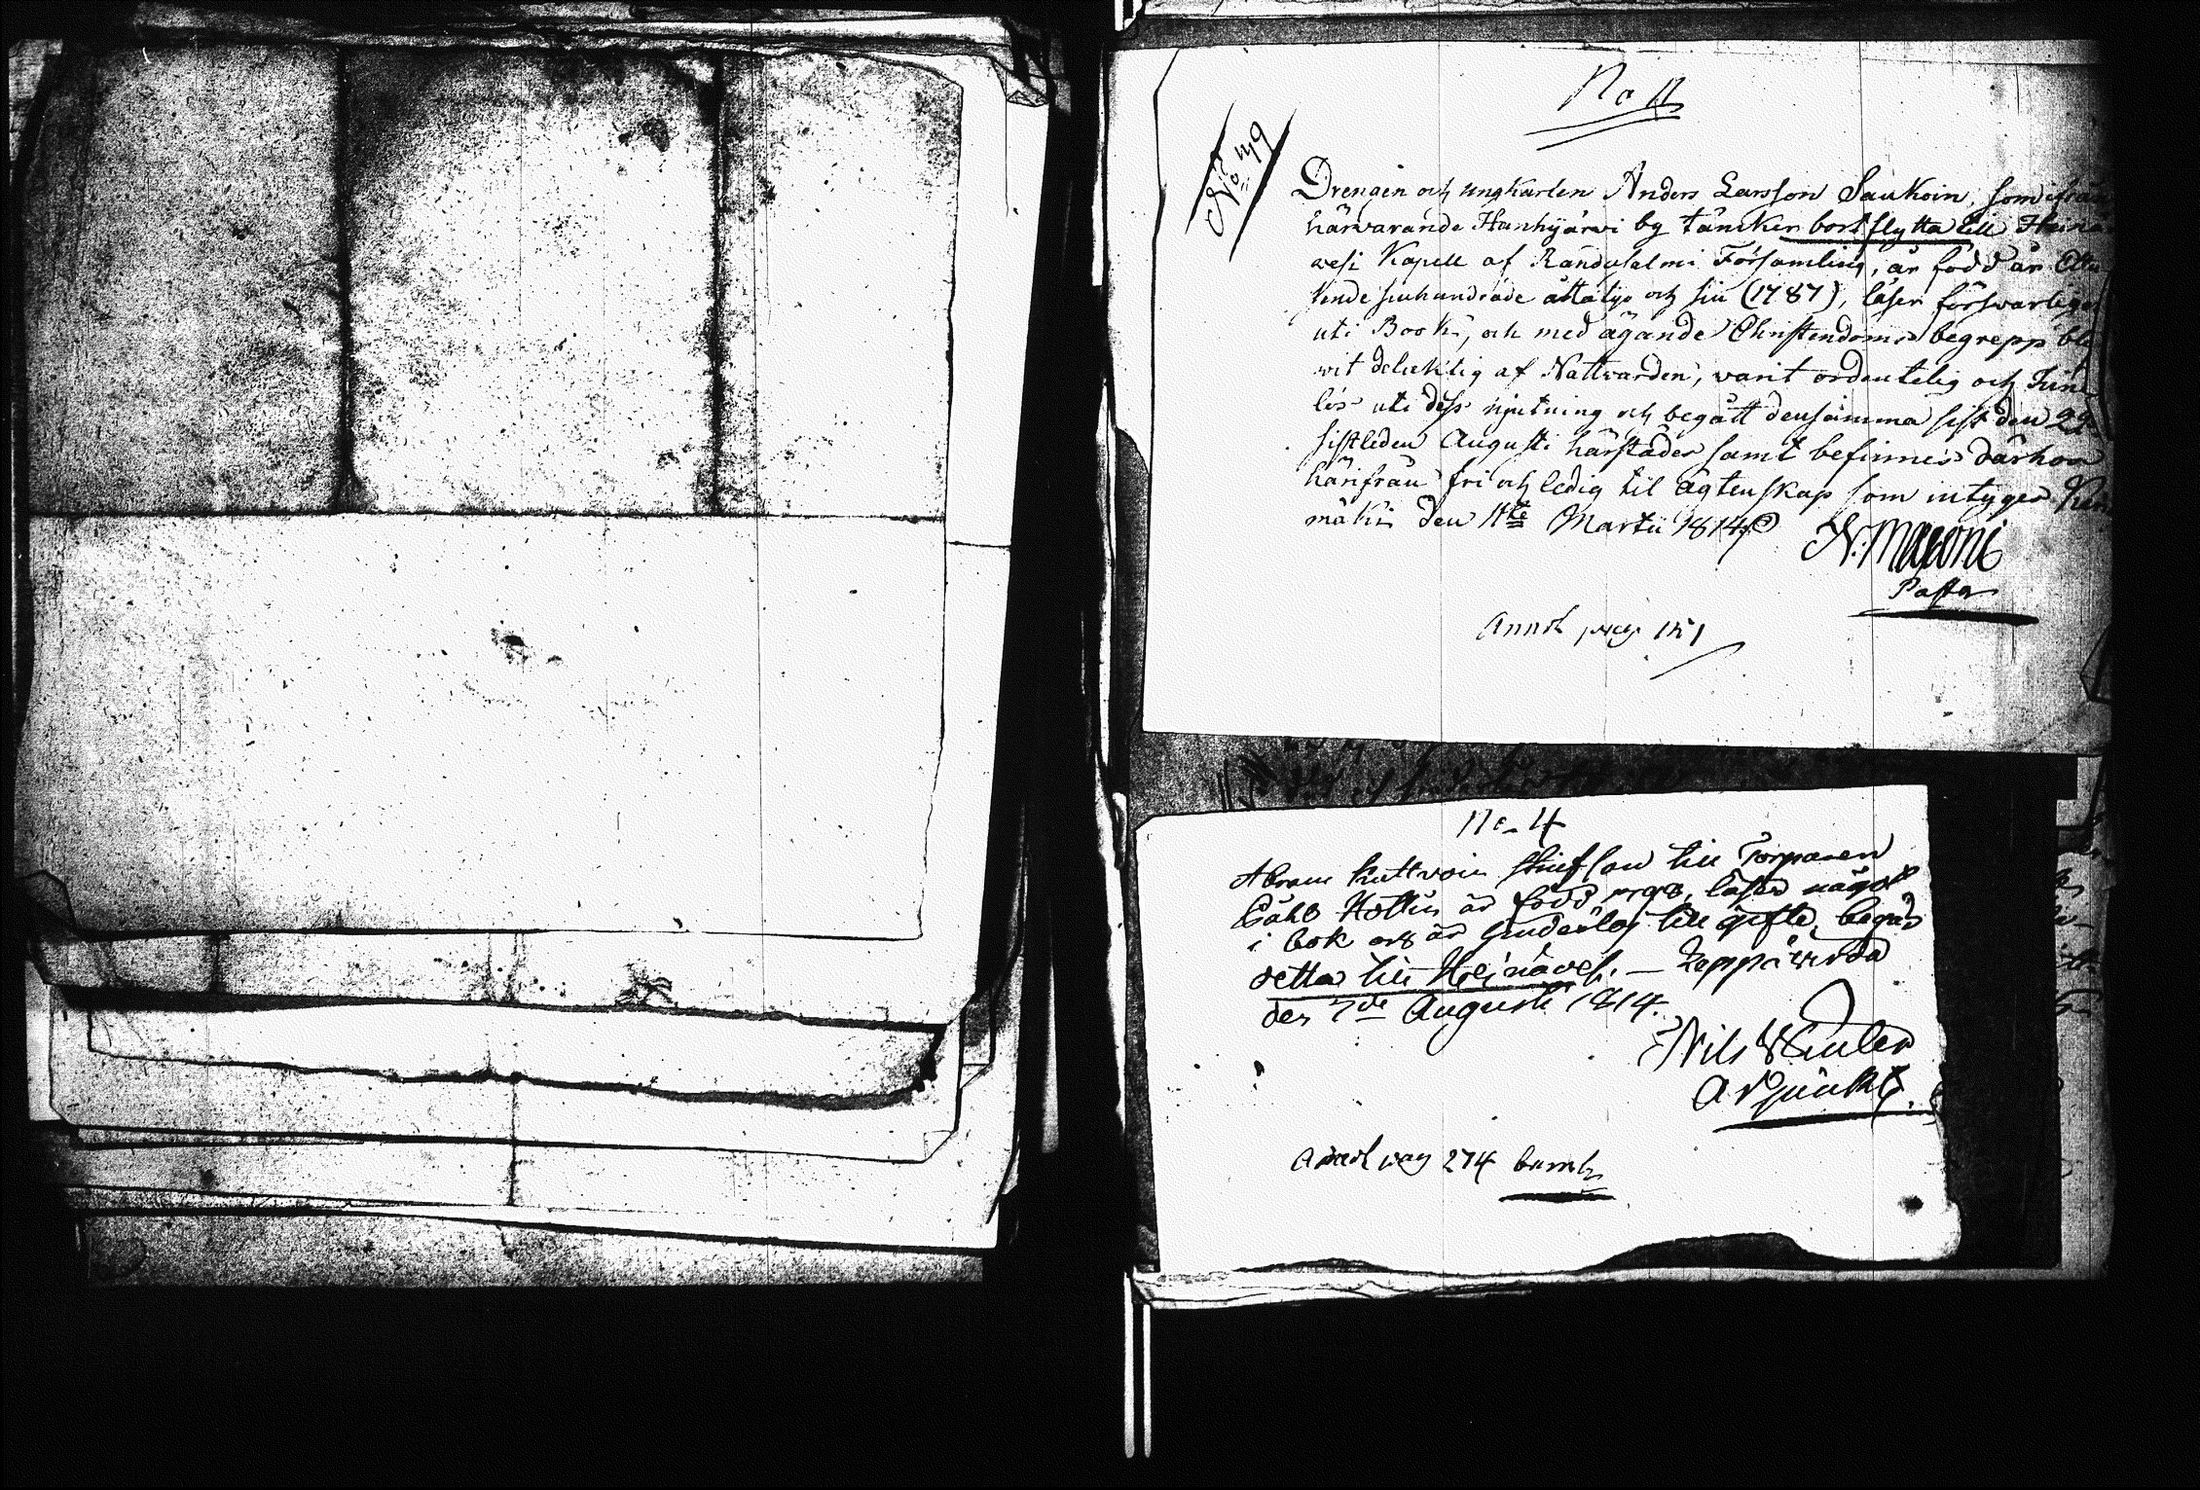 No 11
No 49
Drengen och ungkarlen Anders Larsson Saukoin, som ifrån
härvarande Hanhijärvi by täncker bortflytta till Heinä
vesi Kapell af Randasalmi Församling, är född år Ett
sende siuhundrade åttatijo och siu (1787), läser försvarligen
uti Book, och med ägande Christendoms begrepp ble
vit delacktig af Nattvarden, varit ordentelig och
lös uti dess njutning och begått densamma sist den 22
sistleden Augusti härstädes samt befinnes därhos
härifrån fri och ledig til ägtenskap som intygas
mäki den 11te Martii 1814
N: Magoni
Pastor
Annot pag 151
No 4
Abram Kuttvoin stiufson till Torparen
Påhl Hottin är född, läser något
i bok och är hinderlös till gifte, begär
detta till Heinävesi. — Leppävirda
den 7de Augusti 1814.
Nils
Adjunkt.
Annot pag 274